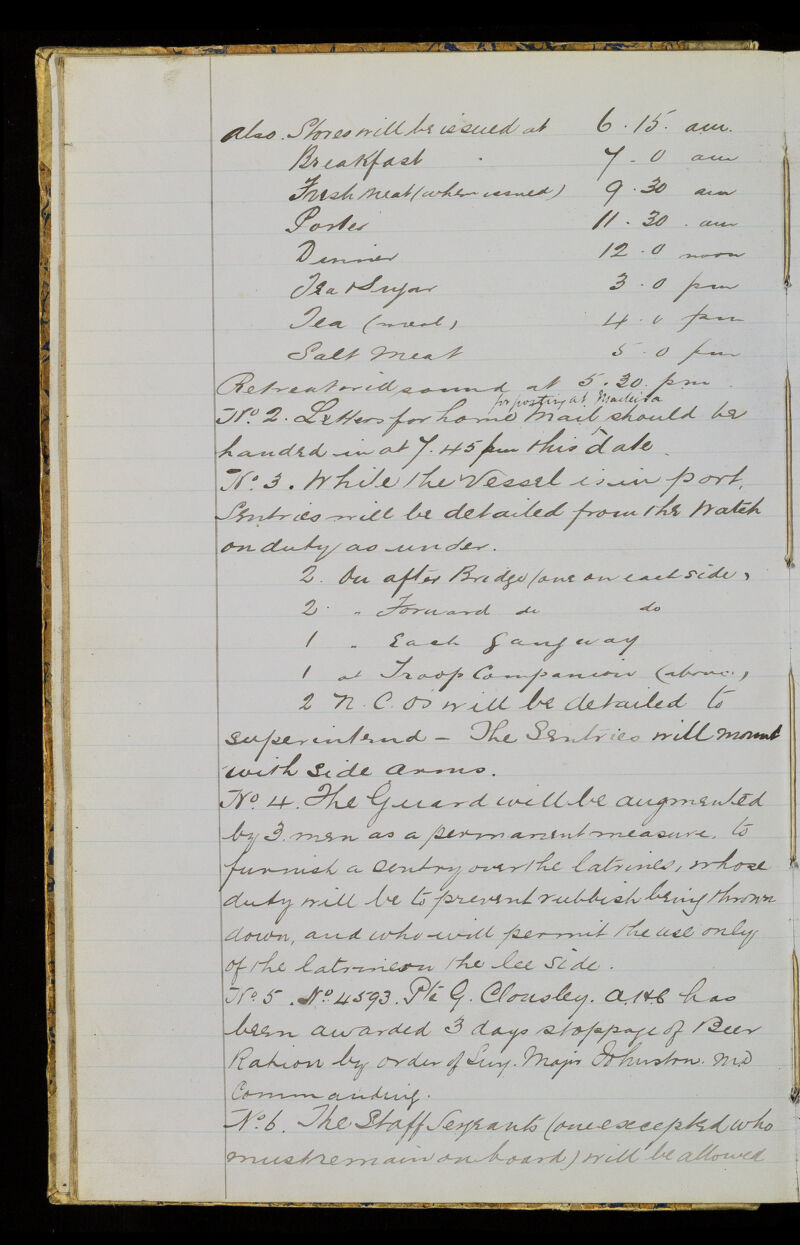 also. Stores will be issued at 6.15. am.
Breakfast 7.0 am
Fresh Meat (when issued) 9.30 am
Porter 11.30. am
Dinner 12.0 noon
Tea & Sugar 3.0 pm
Tea (meal) 4.0 pm
Salt Meat 5.0 pm
Retreat will sound at 5.30. pm.
for posting at Madeira
No. 2. Letters for home Mail should be
handed in at 7.45 pm this date.
No. 3. While the Vessel is in port,
Sentries will be detailed from the Watch
on duty as under.
2. On after Bridge (one on each side)
2. " Forward do do
1 " Each gangway
1 at Troop Companion (above)
2 N.C.Os will be detailed to
superintend - The Sentries will mount
with side arms.
No. 4. The Guard will be augmented
by 3. men as a permanent measure, to
furnish a sentry over the latrines, whose
duty will be to prevent rubbish being thrown
down, and who will permit the use only
of the latrines on the lee side.
No. 5. No. 4593. Pte G. Clousley. A.H.C has
been awarded 3 days stoppage of Beer
Ration by order of Surg. Major Johnston. M.D
Commanding.
No. 6. The Staff Sergeants (one excepted who
must remain on board) will be allowed